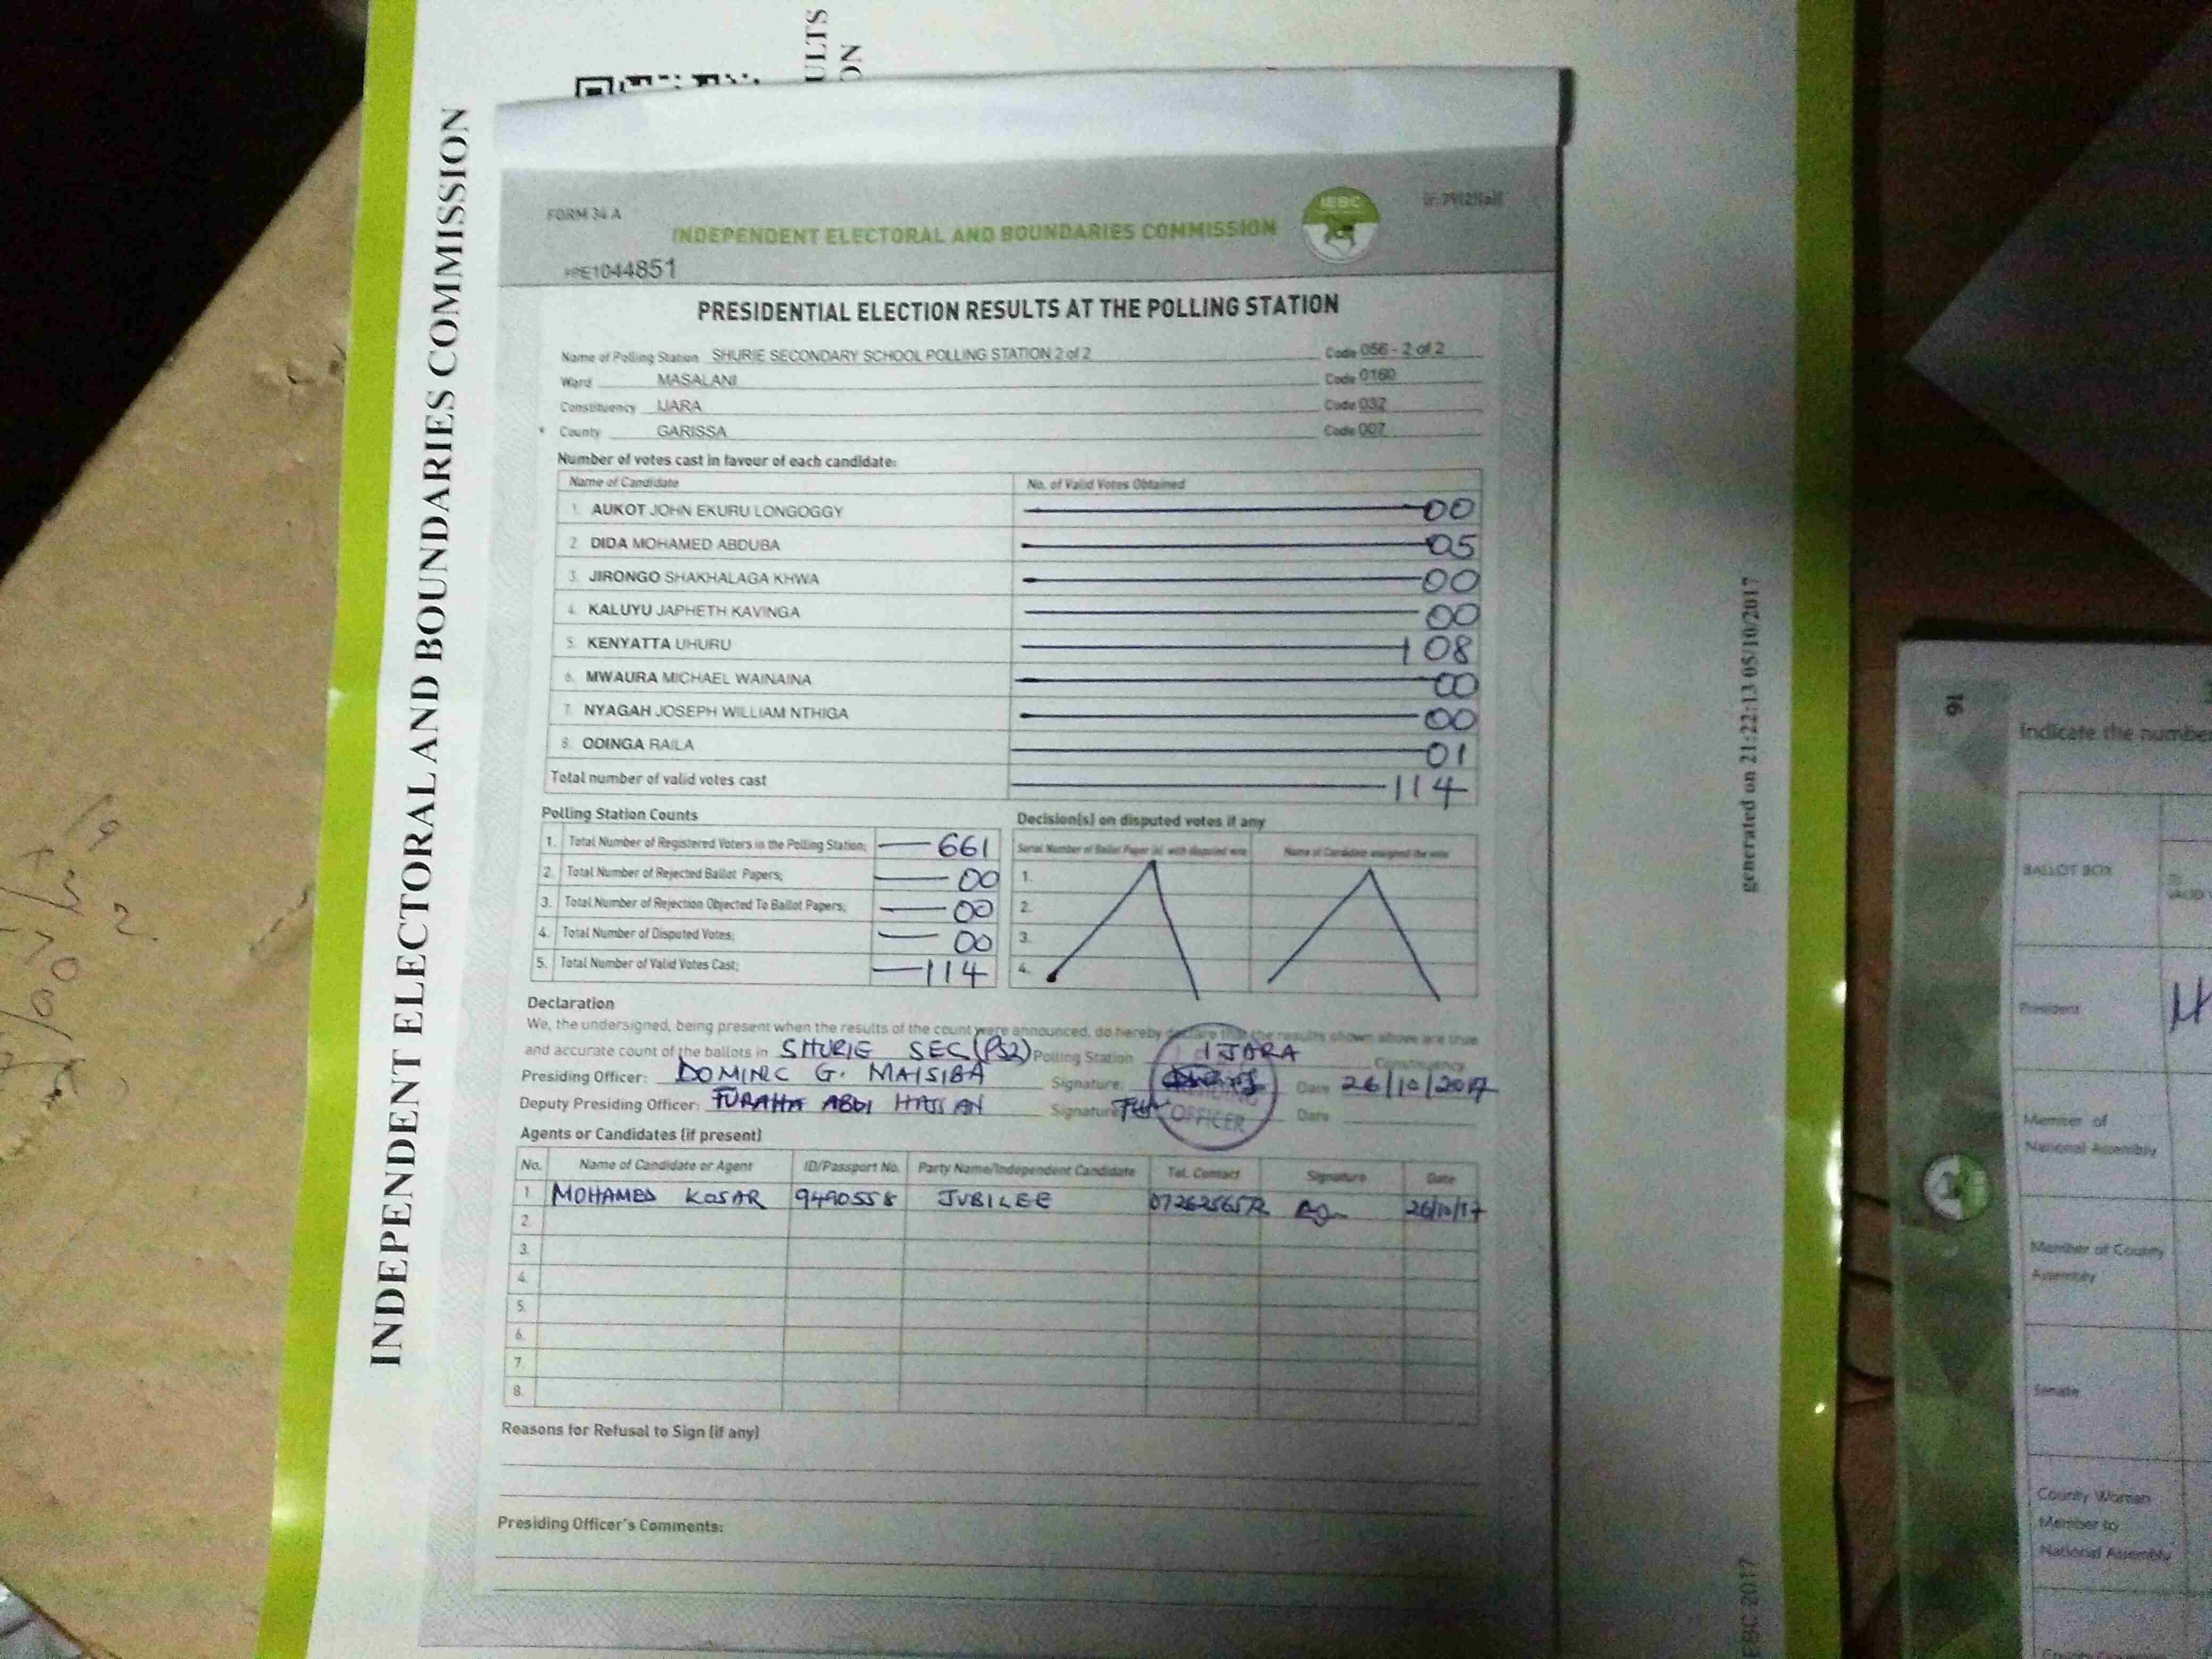 ULTS
ON
INDEPENDENT ELECTORAL AND BOUNDARIES COMMISSION
FORM 34 A
IEBC
INDEPENDENT ELECTORAL AND BOUNDARIES COMMISSION
#PE1044851
PRESIDENTIAL ELECTION RESULTS AT THE POLLING STATION
Name of Polling Station SHURIE SECONDARY SCHOOL POLLING STATION 2 of 2 Code 056 - 2 of 2
Ward MASALANI Code 0160
Constituency IJARA Code 032
County GARISSA Code 007
Number of votes cast in favour of each candidate:
Name of Candidate No. of Valid Votes Obtained
1. AUKOT JOHN EKURU LONGOGGY 00
2. DIDA MOHAMED ABDUBA 05
3. JIRONGO SHAKHALAGA KHWA 00
4. KALUYU JAPHETH KAVINGA 00
5. KENYATTA UHURU 108
6. MWAURA MICHAEL WAINAINA 00
7. NYAGAH JOSEPH WILLIAM NTHIGA 00
8. ODINGA RAILA 01
Total number of valid votes cast 114
Polling Station Counts
1. Total Number of Registered Voters in the Polling Station; 661
2. Total Number of Rejected Ballot Papers; 00
3. Total Number of Rejection Objected To Ballot Papers; 00
4. Total Number of Disputed Votes; 00
5. Total Number of Valid Votes Cast; 114
Decision(s) on disputed votes if any
Serial Number of Ballot Paper (s) with disputed vote Name of Candidate assigned the vote
1.
2.
3.
4.
Declaration
We, the undersigned, being present when the results of the count were announced, do hereby declare that the results shown above are true
and accurate count of the ballots in SHURIE SEC (PS2) Polling Station IJARA Constituency
Presiding Officer: DOMINIC G. MAISIBA Signature: Date 26/10/2017
Deputy Presiding Officer: FURAHA ABDI HASSAN Signature: Date
PRESIDING
OFFICER
Agents or Candidates (if present)
No. Name of Candidate or Agent ID/Passport No. Party Name/Independent Candidate Tel. Contact Signature Date
1. MOHAMED KOSAR 9490558 JUBILEE 26/10/17
2.
3.
4.
5.
6.
7.
8.
Reasons for Refusal to Sign (if any)
Presiding Officer's Comments:
generated on 21:22:13 05/10/2017
IEBC 2017
16
Indicate the number
BALLOT BOX
President
Member of
National Assembly
Member of County
Assembly
Senate
County Woman
Member to
National Assembly